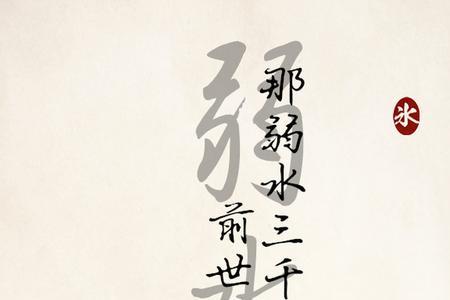 那弱水三千
前世
弱
氷